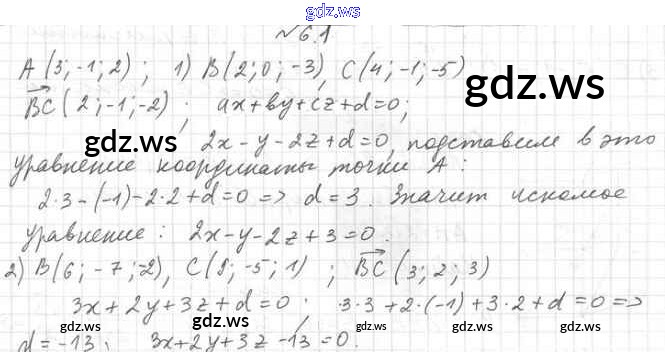 gdz.ru
№ 6.1
A (3; -1; 2) ; 1) B(2; 0; -3), C(4; -1; -5)
gdz.ru
BC (2; -1; -2) ; ax+by+cz+d=0;
gdz.ru
2x - y - 2z + d = 0, подставим в это
уравнение координаты точки A :
2·3 - (-1) - 2·2 + d = 0 => d = 3. Значит искомое
уравнение : 2x - y - 2z + 3 = 0.
2) B(6; -7; -2), C(8; -5; 1) ; BC (3; 2; 3)
3x + 2y + 3z + d = 0 ; 3·3 + 2·(-1) + 3·2 + d = 0 =>
gdz.ru gdz.ru gdz.ru gdz.ru
d = -13 ; 3x + 2y + 3z - 13 = 0.